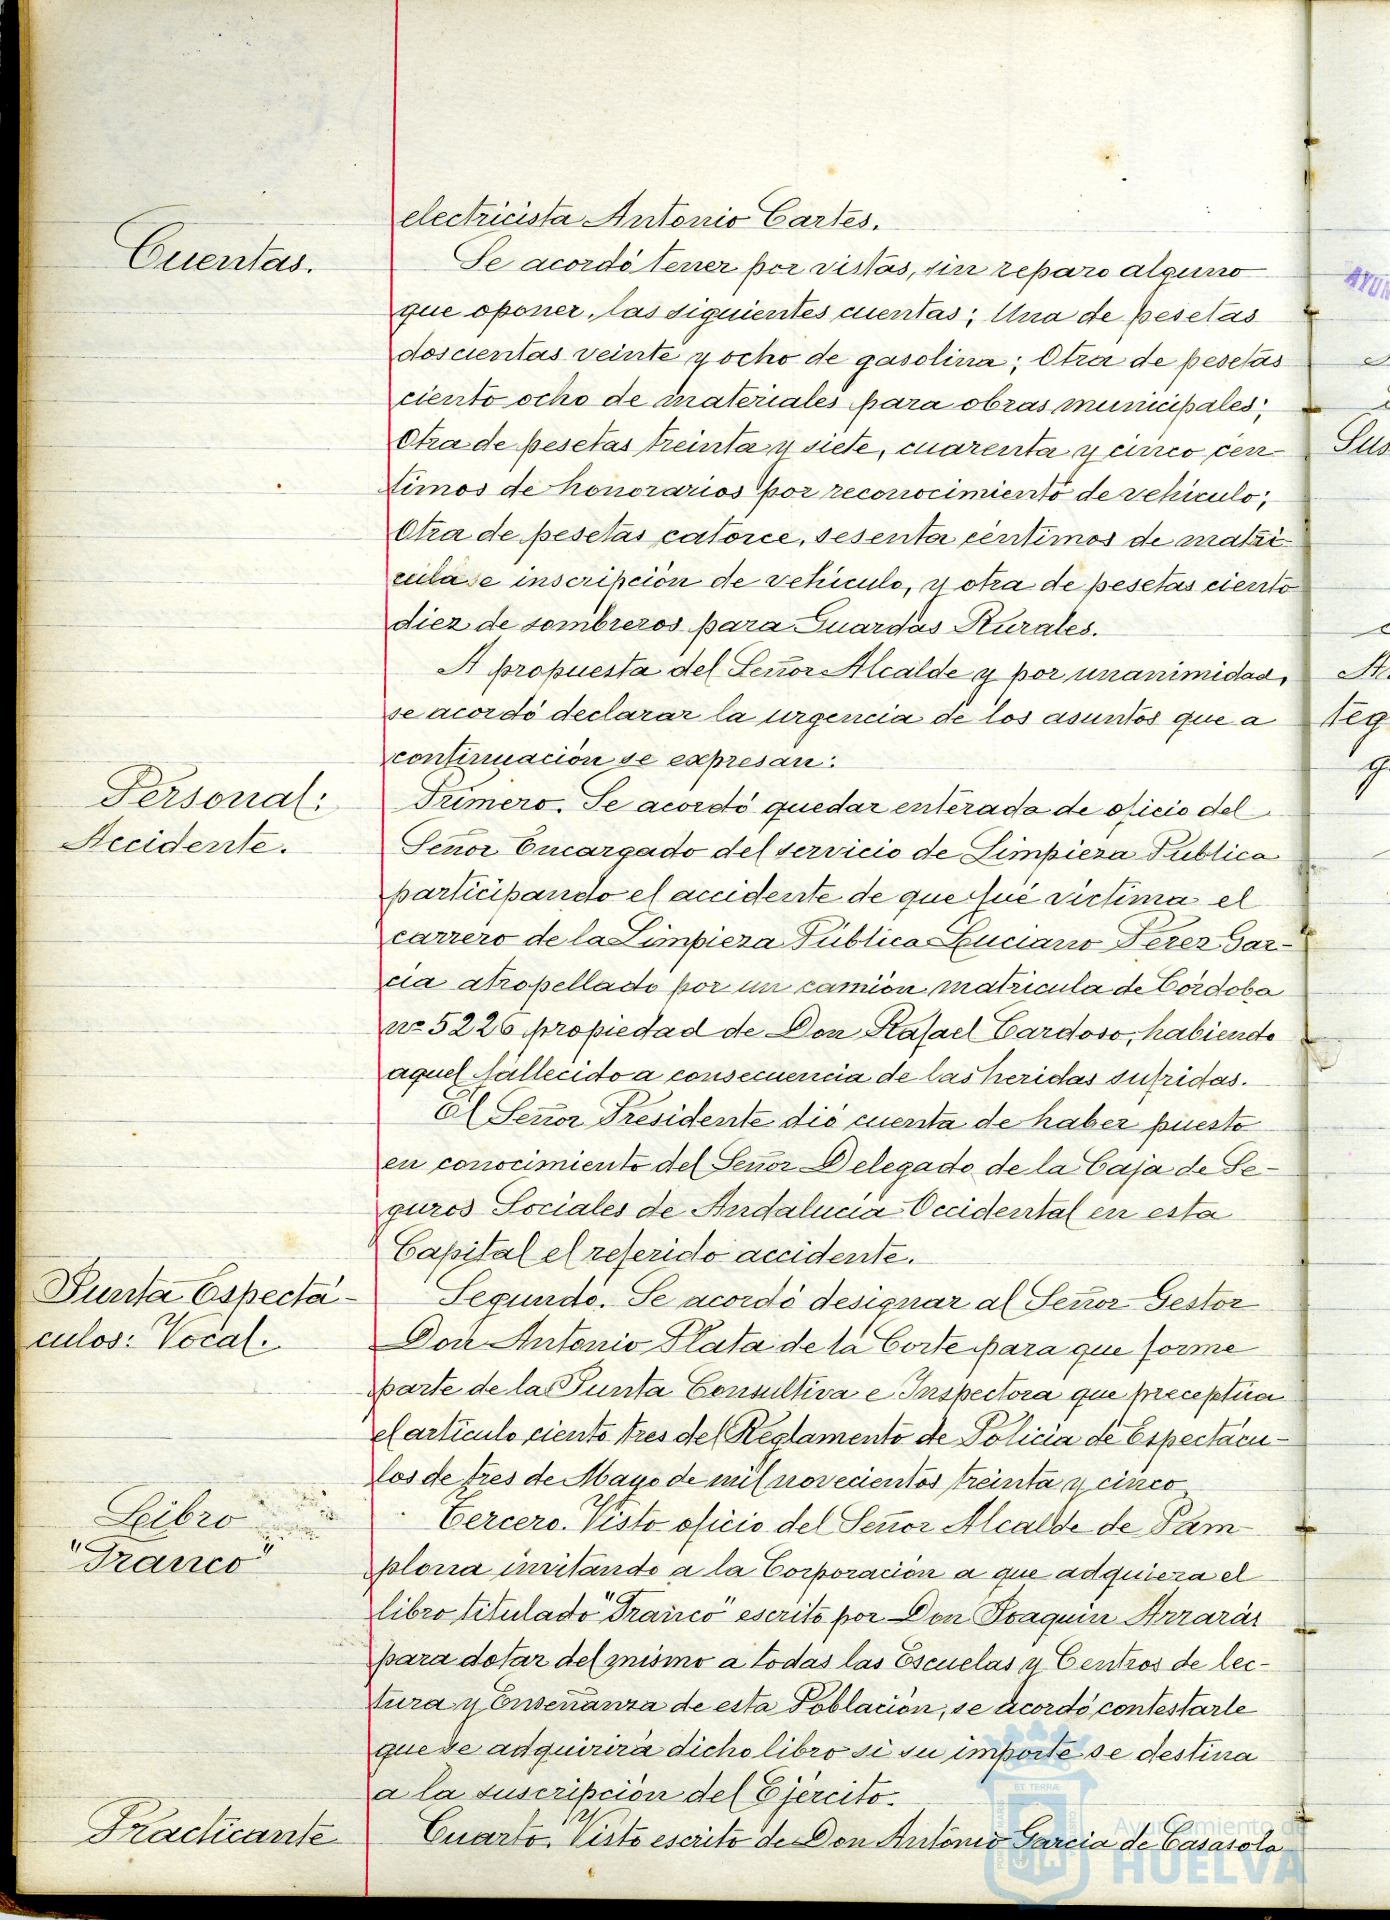 electricista Antonio Cartes.
Cuentas.
Se acordó tener por vistas, sin reparo alguno
que oponer, las siguientes cuentas; Una de pesetas
doscientas veinte y ocho de gasolina; Otra de pesetas
ciento ocho de materiales para obras municipales;
Otra de pesetas treinta y siete, cuarenta y cinco cen-
timos de honorarios por reconocimiento de vehiculo;
Otra de pesetas catorce, sesenta céntimos de matri-
cula e inscripción de vehiculo, y otra de pesetas ciento
diez de sombreros para Guardas Rurales.
A propuesta del Señor Alcalde y por unanimidad,
se acordó declarar la urgencia de los asuntos que a
continuación se expresan:
Personal:
Accidente.
Primero. Se acordó quedar enterada de oficio del
Señor Encargado del servicio de Limpieza Publica
participando el accidente de que fué victima el
carrero de la Limpieza Pública Luciano Perez Gar-
cia atropellado por un camión matricula de Córdoba
nº 5226 propiedad de Don Rafael Cardoso, habiendo
aquel fallecido a consecuencia de las heridas sufridas.
El Señor Presidente dió cuenta de haber puesto
en conocimiento del Señor Delegado de la Caja de Se-
guros Sociales de Andalucia Occidental en esta
Capital el referido accidente.
Junta Espectá-
culos: Vocal.
Segundo. Se acordó designar al Señor Gestor
Don Antonio Plata de la Corte para que forme
parte de la Junta Consultiva e Inspectora que preceptúa
el articulo ciento tres del Reglamento de Policia de Espectácu-
los de tres de Mayo de mil novecientos treinta y cinco
Libro
"Franco"
Tercero. Visto oficio del Señor Alcalde de Pam-
plona invitando a la Corporación a que adquiera el
libro titulado "Franco" escrito por Don Joaquin Arrarás
para dotar del mismo a todas las Escuelas y Centros de lec-
tura y Enseñanza de esta Población, se acordó contestarle
que se adquirirá dicho libro si su importe se destina
a la suscripción del Ejército.
Practicante
Cuarto. Visto escrito de Don Antonio Garcia de Casasola
Ayuntamiento de
HUELVA
AYUN
Sus
teg